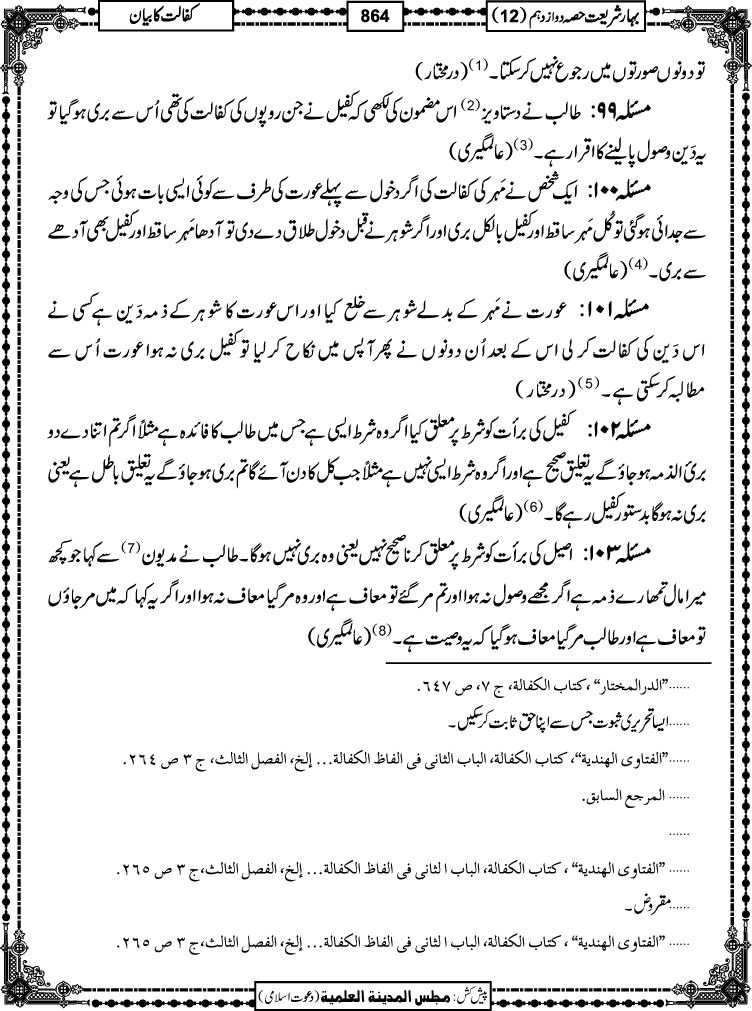 بہارِشریعت حصہ دوازدہم (12)
864
کفالت کا بیان
تو دونوں صورتوں میں رجوع نہیں کرسکتا۔(1) (درمختار)
مسئلہ ۹۹: طالب نے دستاویز(2) اس مضمون کی لکھی کہ کفیل نے جن روپوں کی کفالت کی تھی اُس سے بری ہوگیا تو
یہ دَین وصول پالینے کا اقرار ہے۔(3) (عالمگیری)
مسئلہ ۱۰۰: ایک شخص نے مَہر کی کفالت کی اگر دخول سے پہلے عورت کی طرف سے کوئی ایسی بات ہوئی جس کی وجہ
سے جدائی ہوگئی تو کُل مَہر ساقط اور کفیل بالکل بری اور اگر شوہر نے قبل دخول طلاق دے دی تو آدھا مَہر ساقط اور کفیل بھی آدھے
سے بری۔(4) (عالمگیری)
مسئلہ ۱۰۱: عورت نے مَہر کے بدلے شوہر سے خلع کیا اور اس عورت کا شوہر کے ذمہ دَین ہے کسی نے
اس دَین کی کفالت کرلی اس کے بعد اُن دونوں نے پھر آپس میں نکاح کرلیا تو کفیل بری نہ ہوا عورت اُس سے
مطالبہ کرسکتی ہے۔(5) (درمختار)
مسئلہ ۱۰۲: کفیل کی برأت کو شرط پر معلق کیا اگر وہ شرط ایسی ہے جس میں طالب کا فائدہ ہے مثلاً اگر تم اتنا دے دو
بریٔ الذمہ ہوجاؤگے یہ تعلیق صحیح ہے اور اگر وہ شرط ایسی نہیں ہے مثلاً جب کل کا دن آئے گا تم بری ہوجاؤگے یہ تعلیق باطل ہے یعنی
بری نہ ہوگا بدستور کفیل رہے گا۔(6) (عالمگیری)
مسئلہ ۱۰۳: اصیل کی برأت کو شرط پر معلق کرنا صحیح نہیں یعنی وہ بری نہیں ہوگا۔ طالب نے مدیون(7) سے کہا جو کچھ
میرا مال تمھارے ذمہ ہے اگر مجھے وصول نہ ہوا اور تم مرگئے تو معاف ہے اور وہ مرگیا معاف نہ ہوا اور اگر یہ کہا کہ میں مرجاؤں
تو معاف ہے اور طالب مرگیا معاف ہوگیا کہ یہ وصیت ہے۔(8) (عالمگیری)
......”الدرالمختار“، کتاب الکفالة، ج ۷، ص ٦٤۷.
......ایسا تحریری ثبوت جس سے اپنا حق ثابت کرسکیں۔
......”الفتاوی الهندیة“، کتاب الکفالة، الباب الثانی فی الفاظ الکفالة... إلخ، الفصل الثالث، ج ۳ ص ۲٦٤.
...... المرجع السابق.
......
...... ”الفتاوی الهندیة“، کتاب الکفالة، الباب الثانی فی الفاظ الکفالة... إلخ، الفصل الثالث، ج ۳ ص ۲٦٥.
......مقروض۔
...... ”الفتاوی الهندیة“، کتاب الکفالة، الباب الثانی فی الفاظ الکفالة... إلخ، الفصل الثالث، ج ۳ ص ۲٦٥.
پیش کش: مجلس المدینة العلمیة (دعوتِ اسلامی)